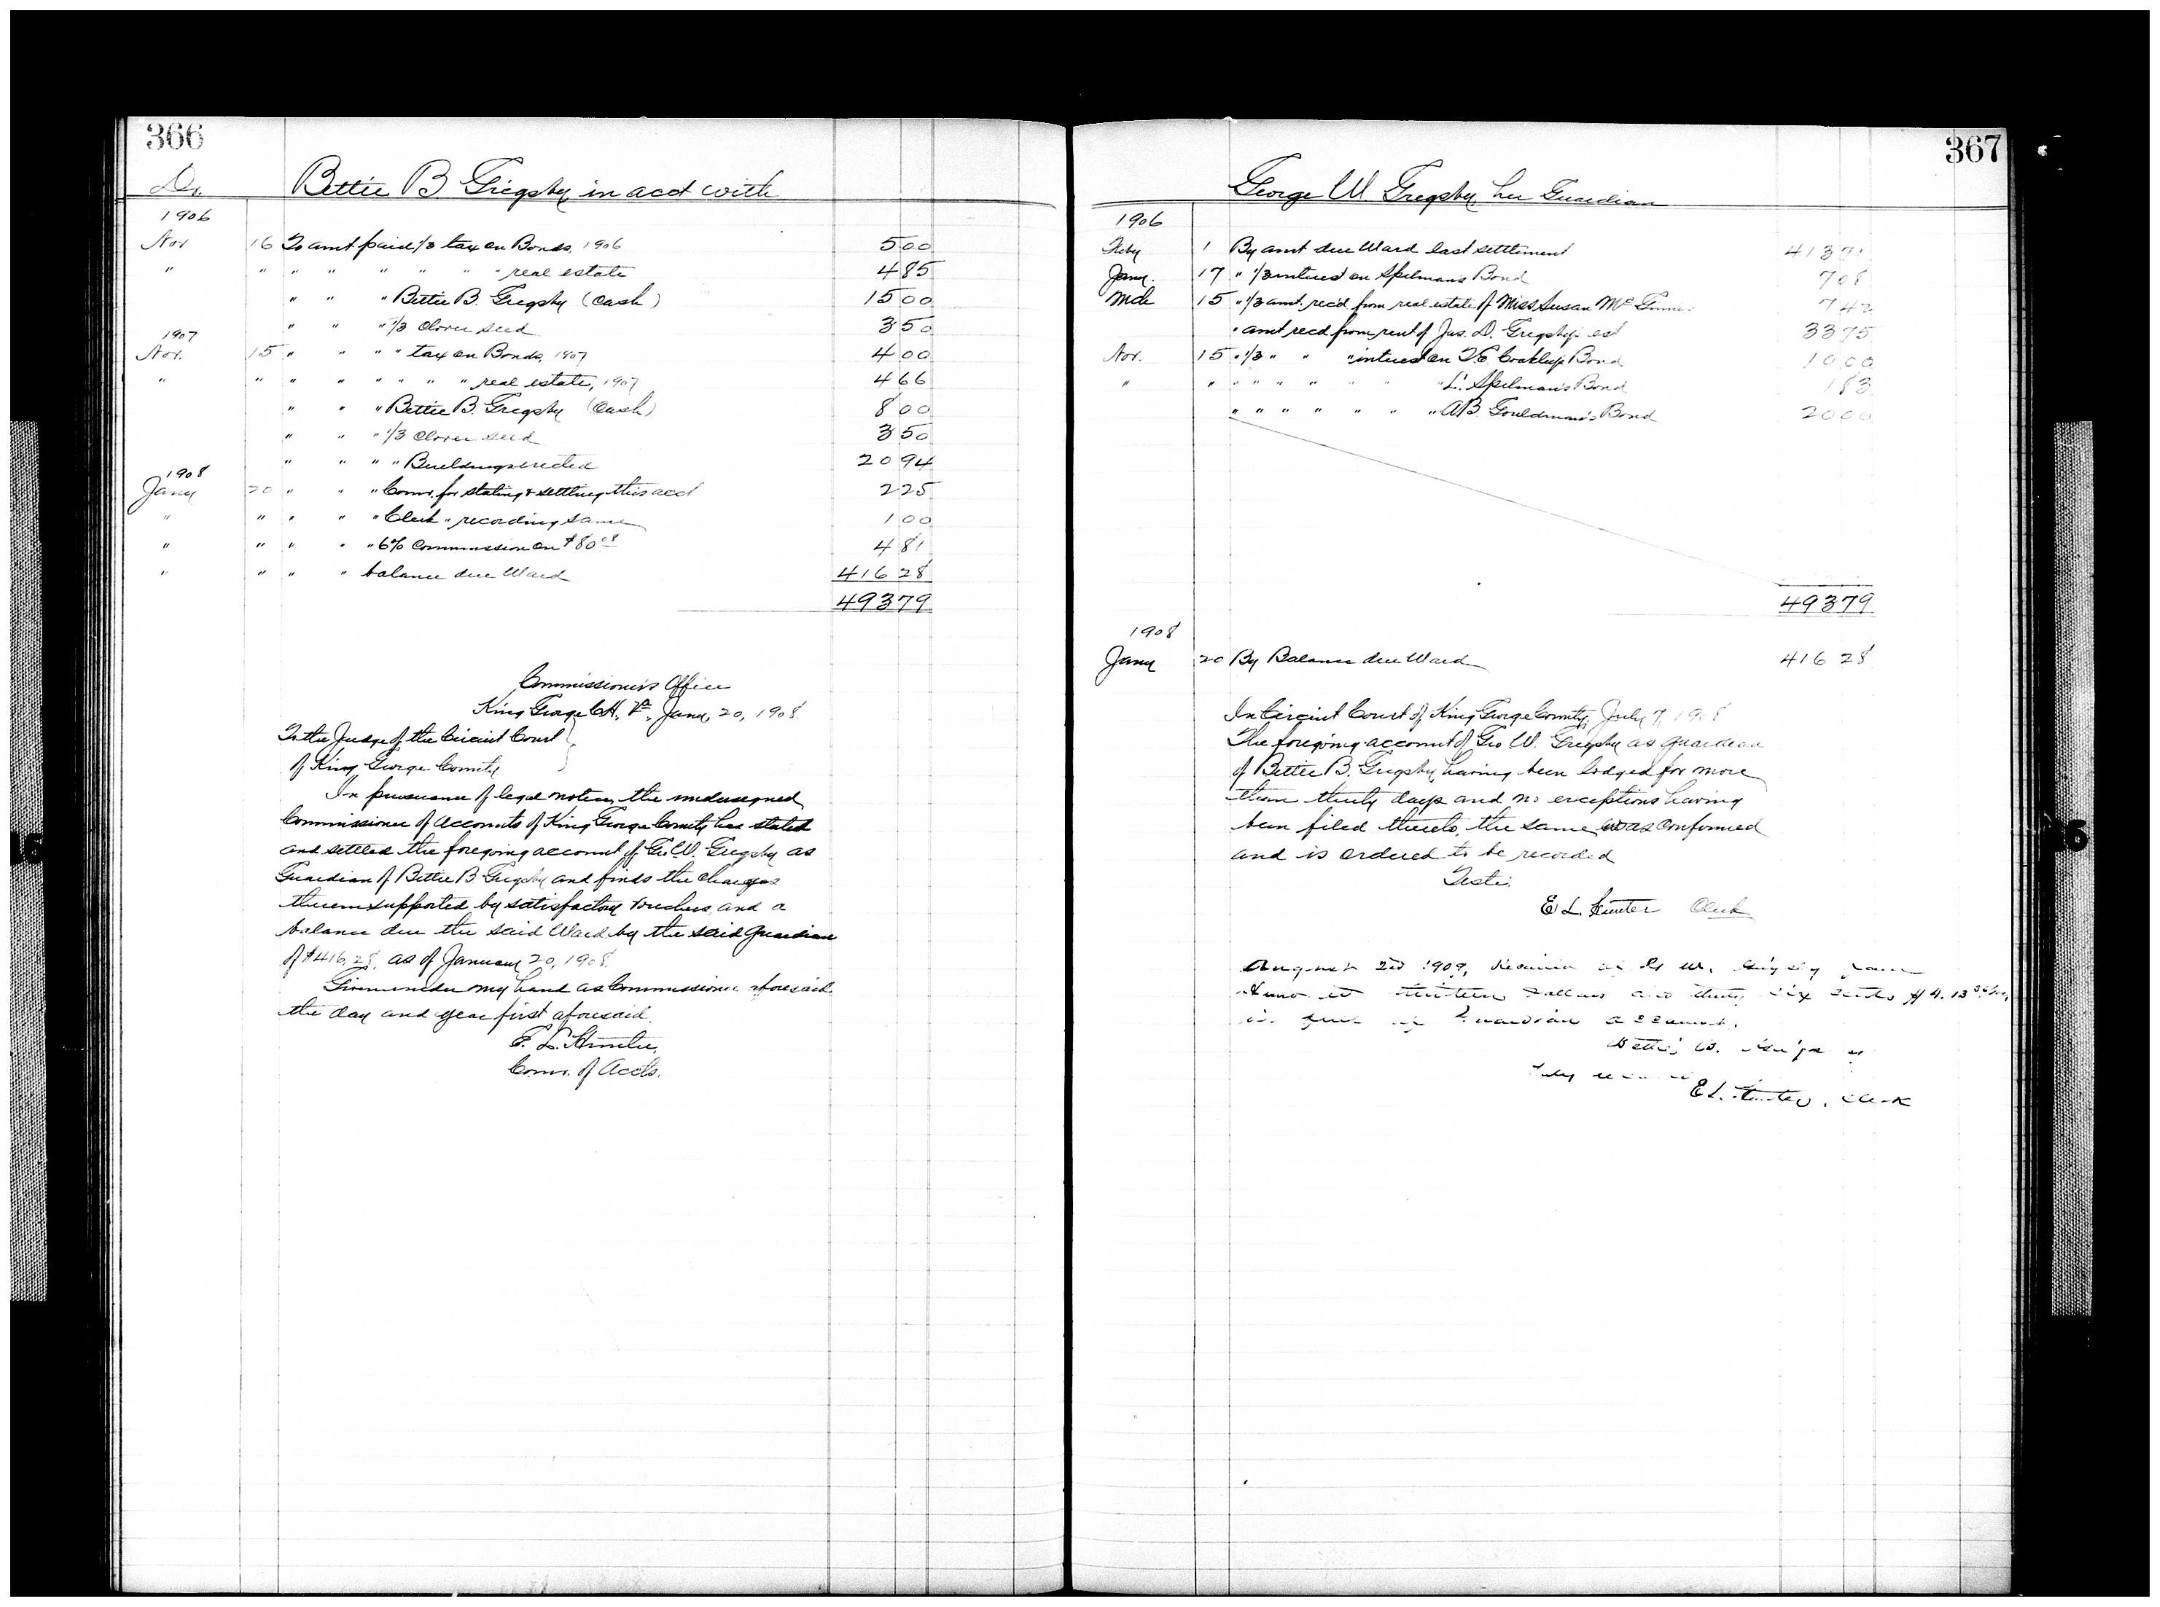 366
Dr. Bettie B. Grigsby in acct with
1906
Nov 16 To amt paid 1/3 tax on Bonds, 1906 5 00
" " " " " " " " real estate 4 85
" " " Bettie B. Grigsby (Cash) 15 00
" " " 1/3 Clover seed 3 50
1907
Nov. 15 " " " " tax on Bonds, 1907 4 00
" " " " " " " " real estate, 1907 4 66
" " " Bettie B. Grigsby (Cash) 8 00
" " " 1/3 Clover seed 3 50
" " " " Buildings erected 20 94
1908
Jany 20 " " " Comr. for stating & settling this acct 2 25
" " " " " Clerk " recording same 1 00
" " " " " 6% Commission on $80 08 4 81
" " " " balance due Ward 416 28
493 79
Commissioner's Office
King George C.H., Va., Jany, 20, 1908
To the Judge of the Circuit Court
of King George County
In pursuance of legal notice, the undersigned
Commissioner of Accounts of King George County has stated
and settled the foregoing account of Geo. W. Grigsby as
Guardian of Bettie B. Grigsby and finds the charges
therein supported by satisfactory vouchers, and a
balance due the said Ward by the said guardian
of $416.28, as of January 20, 1908.
Given under my hand as Commissioner aforesaid
the day and year first aforesaid.
E. L. Hunter,
Comr. of Accts.
367
George W. Grigsby, her Guardian
1906
Feby 1 By amt due Ward last settlement 413 71
Jany. 17 " 1/3 interest on Spilman's Bond 7 08
Mch 15 " 1/3 amt. rec'd from real estate of Miss Susan Mc 7 42
" amt recd from rent of Jas. D. Grigsby's est 33 75
Nov. 15 " 1/3 " " " interest on T. E. Bond 10 00
" " " " " " " " " L. Spilman's Bond 1 83
" " " " " " " A B Gouldman's Bond 20 00
493 79
1908
Jany 20 By Balance due Ward 416 28
In Circuit Court of King George County, July 7, 1908
The foregoing account of Geo W. Grigsby as guardian
of Bettie B. Grigsby, having been lodged for more
than thirty days and no exceptions having
been filed thereto, the same was confirmed
and is ordered to be recorded
Teste:
E. L. Hunter Clerk
August 2nd 1909, Received of G W. Grigsby four
thirteen Dollars and thirty six cents
in full of Guardian account.
Bettie B. Grigsby
E L. Hunter, Clerk